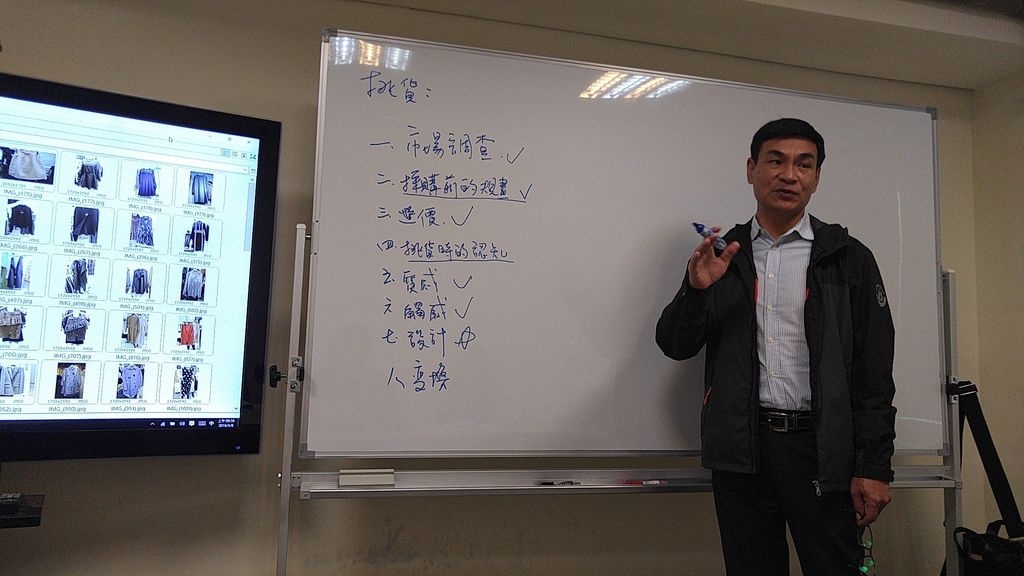 挑貨:
一. 市場調查. ✓
二. 採購前的規畫 ✓
三. 進價. ✓
四. 挑貨時的認知
五. 質感 ✓
六. 觸感 ✓
七. 設計 ☆
八. 變換
IMG_(175).jpg
IMG_(177).jpg
IMG_(178).jpg
IMG_(179).jpg
IMG_(266).jpg
IMG_(267).jpg
IMG_(296).jpg
IMG_(375).jpg
IMG_(498).jpg
IMG_(501).jpg
IMG_(502).jpg
IMG_(707).jpg
IMG_(816).jpg
IMG_(827).jpg
IMG_(990).jpg
IMG_(991).jpg
IMG_(1001).jpg